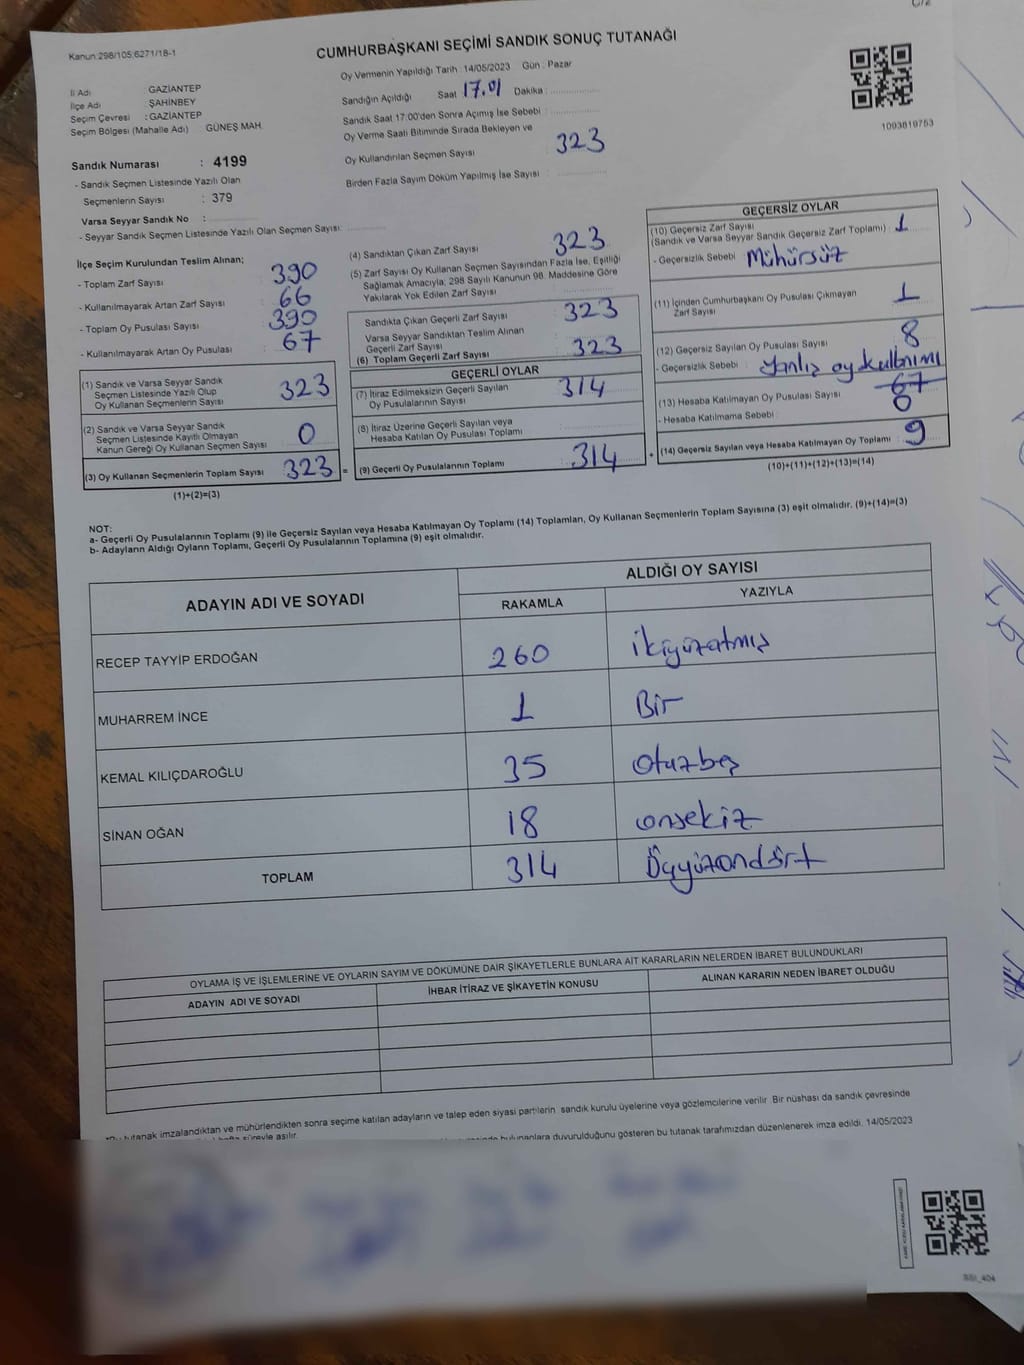 C/2
Kanun:298/105;6271/18-1
CUMHURBAŞKANI SEÇİMİ SANDIK SONUÇ TUTANAĞI
İl Adı GAZİANTEP
İlçe Adı ŞAHİNBEY
Seçim Çevresi : GAZİANTEP
Seçim Bölgesi (Mahalle Adı) GÜNEŞ MAH.
Sandık Numarası : 4199
- Sandık Seçmen Listesinde Yazılı Olan
Seçmenlerin Sayısı : 379
Varsa Seyyar Sandık No :
- Seyyar Sandık Seçmen Listesinde Yazılı Olan Seçmen Sayısı:
Oy Vermenin Yapıldığı Tarih : 14/05/2023 Gün : Pazar
Sandığın Açıldığı Saat 17.01 Dakika :
Sandık Saat 17:00'den Sonra Açımış İse Sebebi :
Oy Verme Saati Bitiminde Sırada Bekleyen ve
Oy Kullandırılan Seçmen Sayısı : 323
Birden Fazla Sayım Döküm Yapılmış İse Sayısı :
1093819753
İlçe Seçim Kurulundan Teslim Alınan;
- Toplam Zarf Sayısı : 390
- Kullanılmayarak Artan Zarf Sayısı : 66
- Toplam Oy Pusulası Sayısı : 390
- Kullanılmayarak Artan Oy Pusulası : 67
(1) Sandık ve Varsa Seyyar Sandık
Seçmen Listesinde Yazılı Olup
Oy Kullanan Seçmenlerin Sayısı : 323
(2) Sandık ve Varsa Seyyar Sandık
Seçmen Listesinde Kayıtlı Olmayan
Kanun Gereği Oy Kullanan Seçmen Sayısı : 0
(3) Oy Kullanan Seçmenlerin Toplam Sayısı : 323 =
(1)+(2)=(3)
(4) Sandıktan Çıkan Zarf Sayısı : 323
(5) Zarf Sayısı Oy Kullanan Seçmen Sayısından Fazla İse, Eşitliği
Sağlamak Amacıyla; 298 Sayılı Kanunun 98. Maddesine Göre
Yakılarak Yok Edilen Zarf Sayısı :
Sandıkta Çıkan Geçerli Zarf Sayısı : 323
Varsa Seyyar Sandıktan Teslim Alınan
Geçerli Zarf Sayısı
(6) Toplam Geçerli Zarf Sayısı : 323
GEÇERLİ OYLAR
(7) İtiraz Edilmeksizin Geçerli Sayılan
Oy Pusulalarının Sayısı : 314
(8) İtiraz Üzerine Geçerli Sayılan veya
Hesaba Katılan Oy Pusulası Toplamı :
(9) Geçerli Oy Pusulalarının Toplamı : 314 +
GEÇERSİZ OYLAR
(10) Geçersiz Zarf Sayısı
(Sandık ve Varsa Seyyar Sandık Geçersiz Zarf Toplamı) : 1
- Geçersizlik Sebebi : Mühürsüz
(11) İçinden Cumhurbaşkanı Oy Pusulası Çıkmayan
Zarf Sayısı : 1
(12) Geçersiz Sayılan Oy Pusulası Sayısı : 8
- Geçersizlik Sebebi : Yanlış oy kullanımı
(13) Hesaba Katılmayan Oy Pusulası Sayısı : 67 0
- Hesaba Katılmama Sebebi :
(14) Geçersiz Sayılan veya Hesaba Katılmayan Oy Toplamı : 9
(10)+(11)+(12)+(13)=(14)
NOT:
a- Geçerli Oy Pusulalarının Toplamı (9) ile Geçersiz Sayılan veya Hesaba Katılmayan Oy Toplamı (14) Toplamları, Oy Kullanan Seçmenlerin Toplam Sayısına (3) eşit olmalıdır. (9)+(14)=(3)
b- Adayların Aldığı Oyların Toplamı, Geçerli Oy Pusulalarının Toplamına (9) eşit olmalıdır.
ADAYIN ADI VE SOYADI ALDIĞI OY SAYISI
RAKAMLA YAZIYLA
RECEP TAYYİP ERDOĞAN 260 ikiyüzatmış
MUHARREM İNCE 1 Bir
KEMAL KILIÇDAROĞLU 35 otuzbeş
SİNAN OĞAN 18 onsekiz
TOPLAM 314 Üçyüzondört
OYLAMA İŞ VE İŞLEMLERİNE VE OYLARIN SAYIM VE DÖKÜMÜNE DAİR ŞİKAYETLERLE BUNLARA AİT KARARLARIN NELERDEN İBARET BULUNDUKLARI
ADAYIN ADI VE SOYADI İHBAR İTİRAZ VE ŞİKAYETİN KONUSU ALINAN KARARIN NEDEN İBARET OLDUĞU
*Bu tutanak imzalandıktan ve mühürlendikten sonra seçime katılan adayların ve talep eden siyasi partilerin sandık kurulu üyelerine veya gözlemcilerine verilir. Bir nüshası da sandık çevresinde
hafta süreyle asılır.
bulunanlara duyurulduğunu gösteren bu tutanak tarafımızdan düzenlenerek imza edildi. 14/05/2023
SSI_404